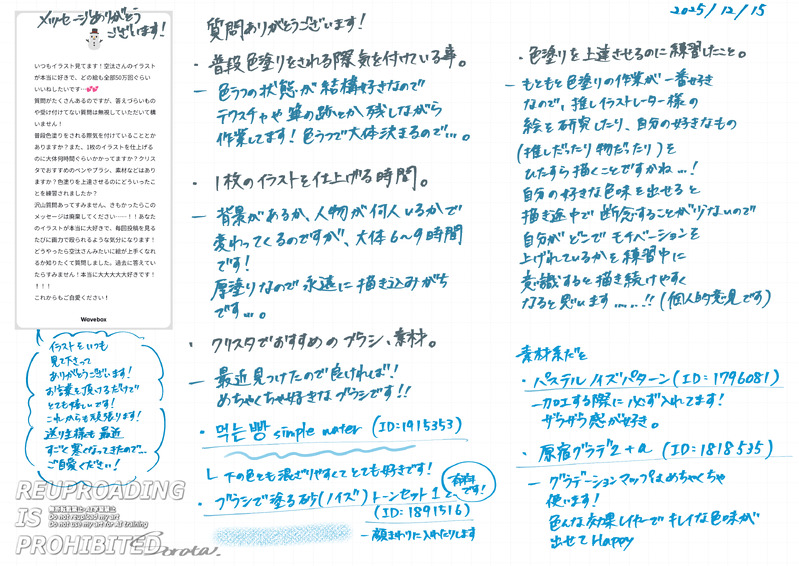 メッセージありがとう
ございます!
いつもイラスト見てます!空汰さんのイラスト
が本当に好きで、どの絵も全部50万回ぐらい
いいねしたいです…💕
質問がたくさんあるのですが、答えづらいもの
や受け付けてない質問は無視していただいて構
いません!
普段色塗りをされる際気を付けていることとか
ありますか?また、1枚のイラストを仕上げる
のに大体何時間ぐらいかかってますか?クリス
タでおすすめのペンやブラシ、素材などはあり
ますか?色塗りを上達させるのにどういったこ
とを練習されましたか?
沢山質問あってすみません、きもかったらこの
メッセージは廃棄してください……!!あなた
のイラストが本当に大好きで、毎回投稿を見る
たびに画力で殴られるような気分になります!
どうやったら空汰さんみたいに絵が上手くなれ
るか知りたくて質問しました。過去に答えてい
たらすみません!本当に大大大大大好きです!
!!!
これからもご自愛ください!
Wavebox
イラストをいつも
見て下さって
ありがとうございます!
お言葉を頂けるだけで
とても嬉しいです!
これからも頑張ります!
送り主様も最近
すごく寒くなってきたので…
ご自愛ください!
REUPROADING
IS
PROHIBITED
無断転載禁止・AI学習禁止
Do not reupload my art
Do not use my art for AI training
Sorota.
質問ありがとうございます!
・普段色塗りをされる際気を付けている事。
― 色ラフの状態が結構好きなので
テクスチャや筆の跡とか残しながら
作業してます!色ラフで大体決まるので…。
・1枚のイラストを仕上げる時間。
― 背景があるか、人物が何人いるかで
変わってくるのですが、大体6~9時間
です!
厚塗りなので永遠に描き込みがち
です…。
・クリスタでおすすめのブラシ、素材。
― 最近見つけたので良ければ!
めちゃくちゃ好きなブラシです!!
・먹는빵 simple water (ID:1915353)
└ 下の色とも混ざりやすくてとても好きです!
・ブラシで塗る砂(ノイズ)トーンセット1と、
有料です!
(ID:1891516)
― 顔まわりに入れたりします
2025/12/15
・色塗りを上達させるのに練習したこと。
― もともと色塗りの作業が一番好き
なので、推しイラストレーター様の
絵を研究したり、自分の好きなもの
(推しだったり物だったり)を
ひたすら描くことですかね…!
自分の好きな色味を出せると
描き途中で断念することが少ないので
自分がどこでモチベーションを
上げれているかを練習中に
意識すると描き続けやすく
なると思います……!!(個人的意見です)
素材系だと
・パステルノイズパターン(ID:1796081)
― 加工する際に必ず入れてます!
ザラザラ感が好き。
・原宿グラデ2+α (ID:1818535)
― グラデーションマップはめちゃくちゃ
使います!
色んな効果レイヤーでキレイな色味が
出せてHappy